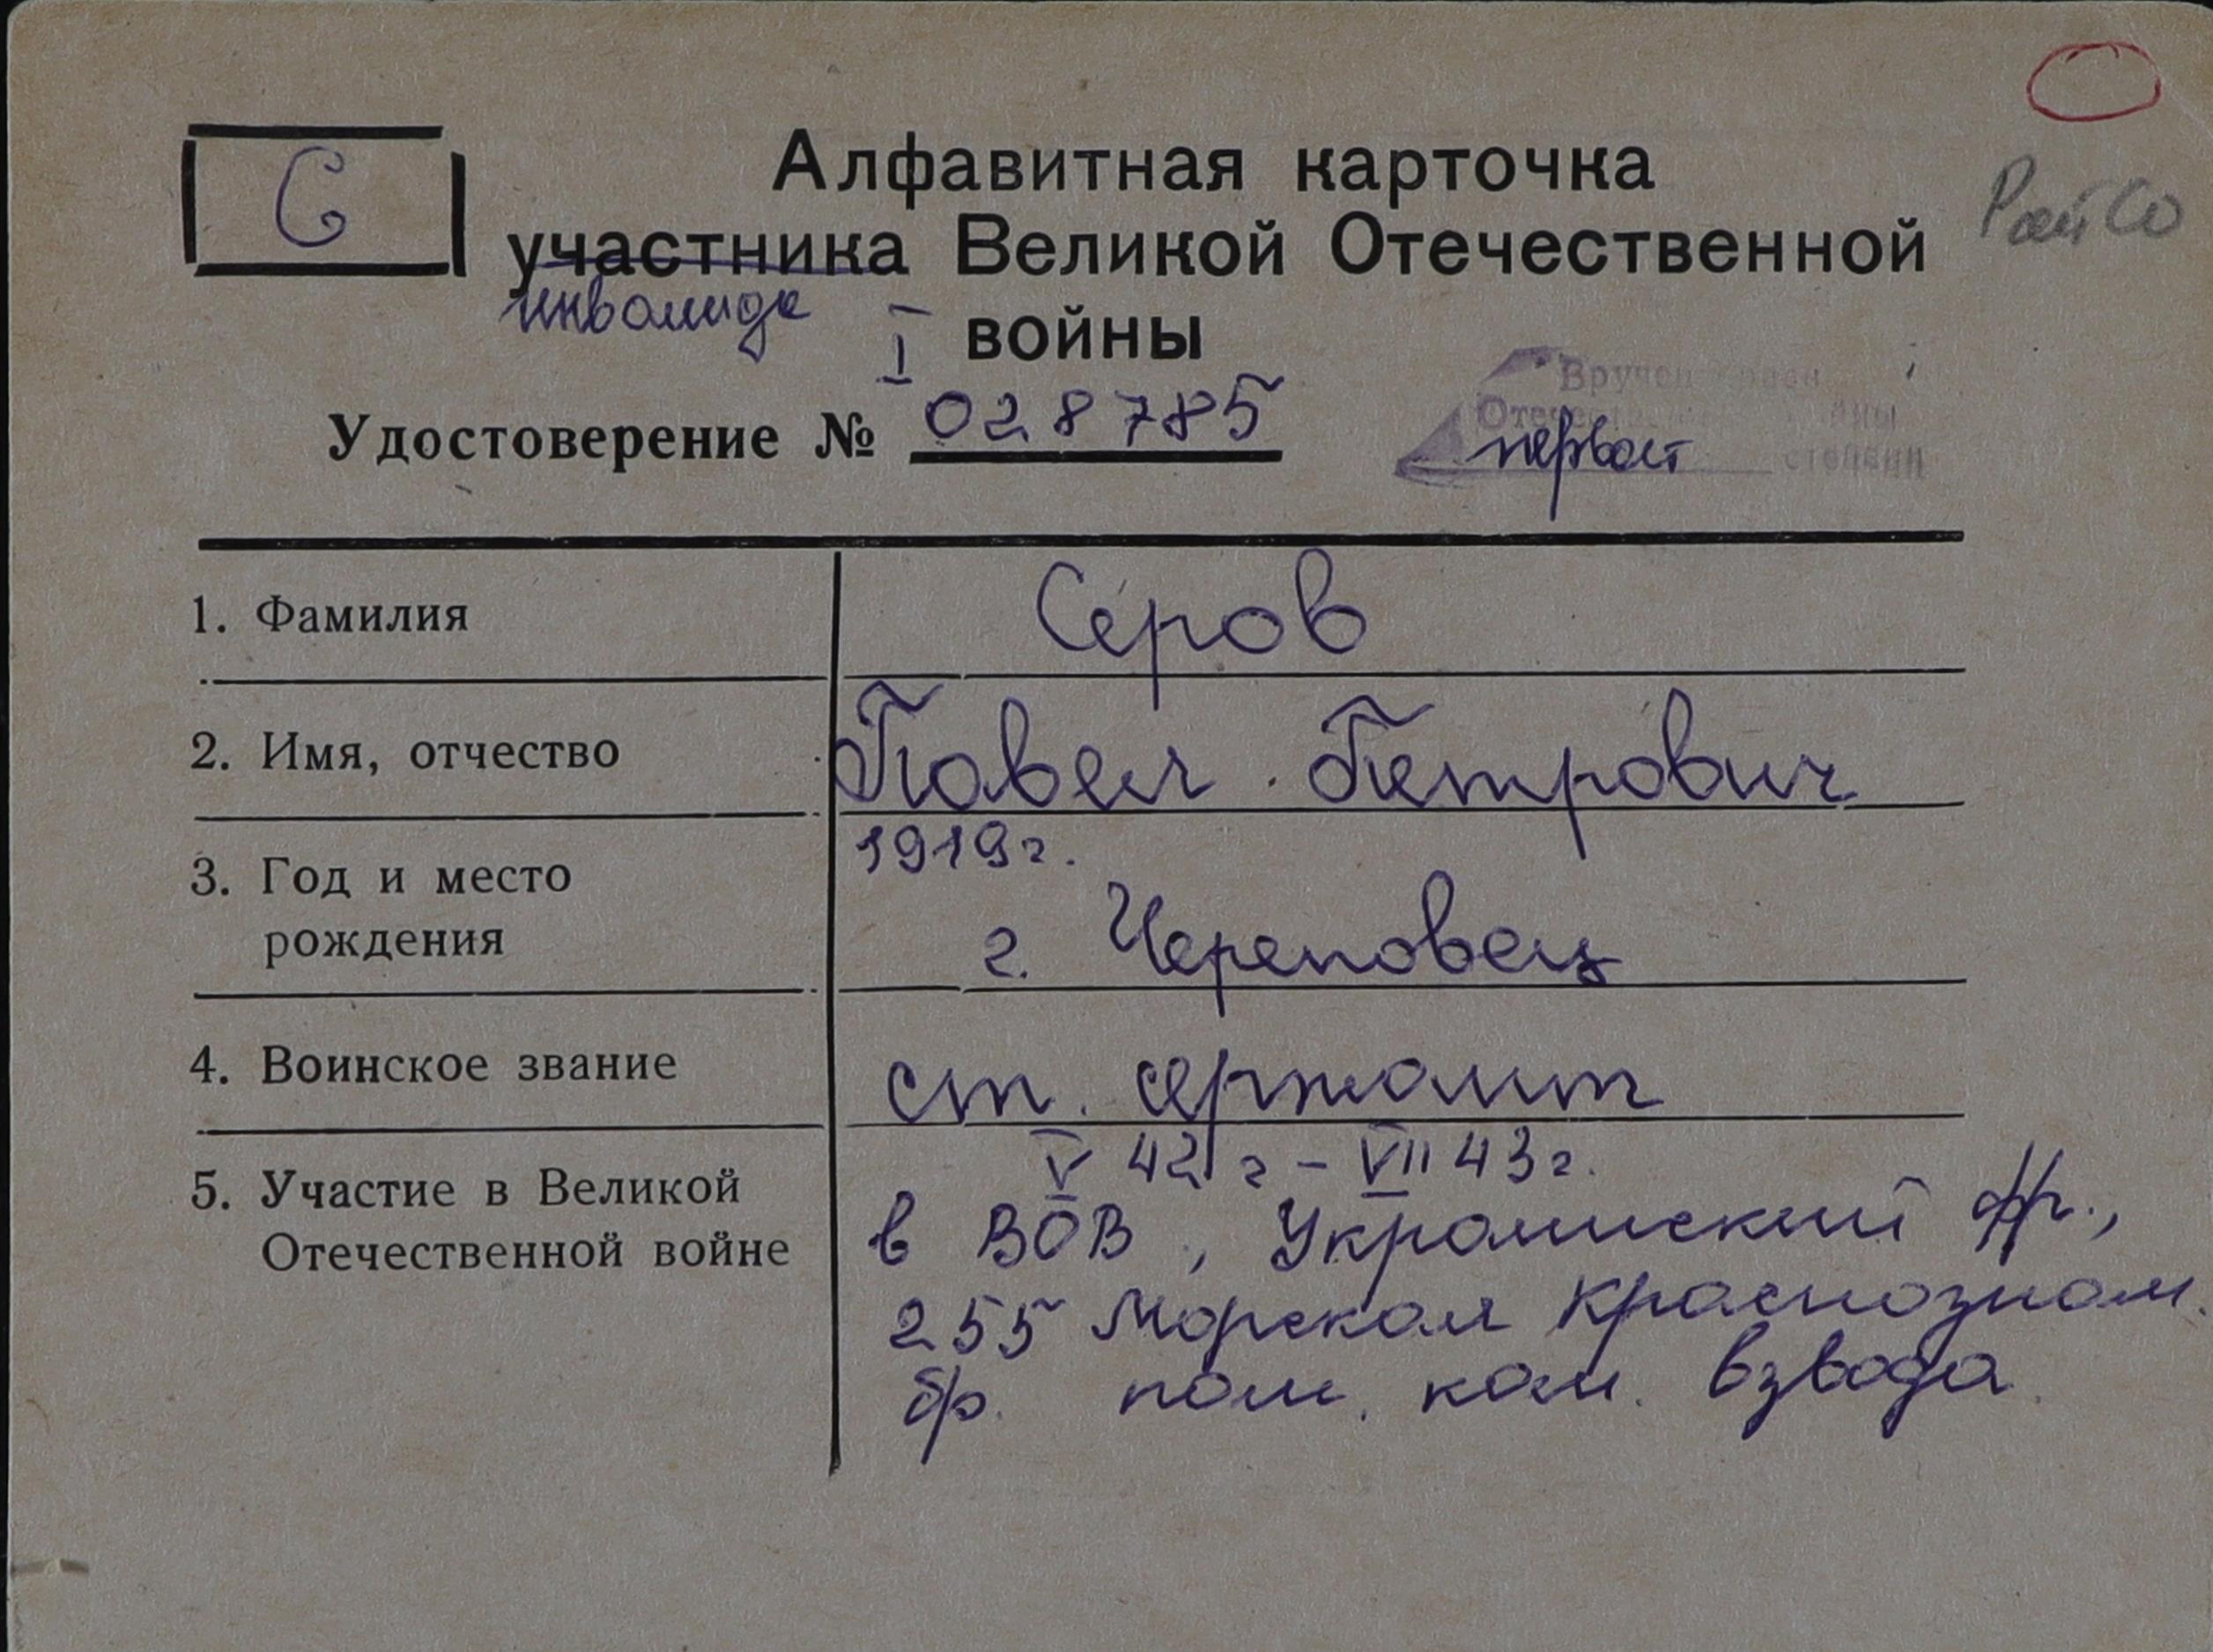 С
Алфавитная карточка
участника Великой Отечественной
инвалида
войны
I
Удостоверение № 028785
РайСо
Вручен орден
Отечественной войны
первой степени
1. Фамилия Серов
2. Имя, отчество Павел Петрович
3. Год и место 1919г.
рождения г. Череповец
4. Воинское звание ст. сержант
5. Участие в Великой V 42 г - VII 43 г.
Отечественной войне в ВОВ, Украинский фр.,
255 Морская Краснознам.
бр. пом. ком. взвода